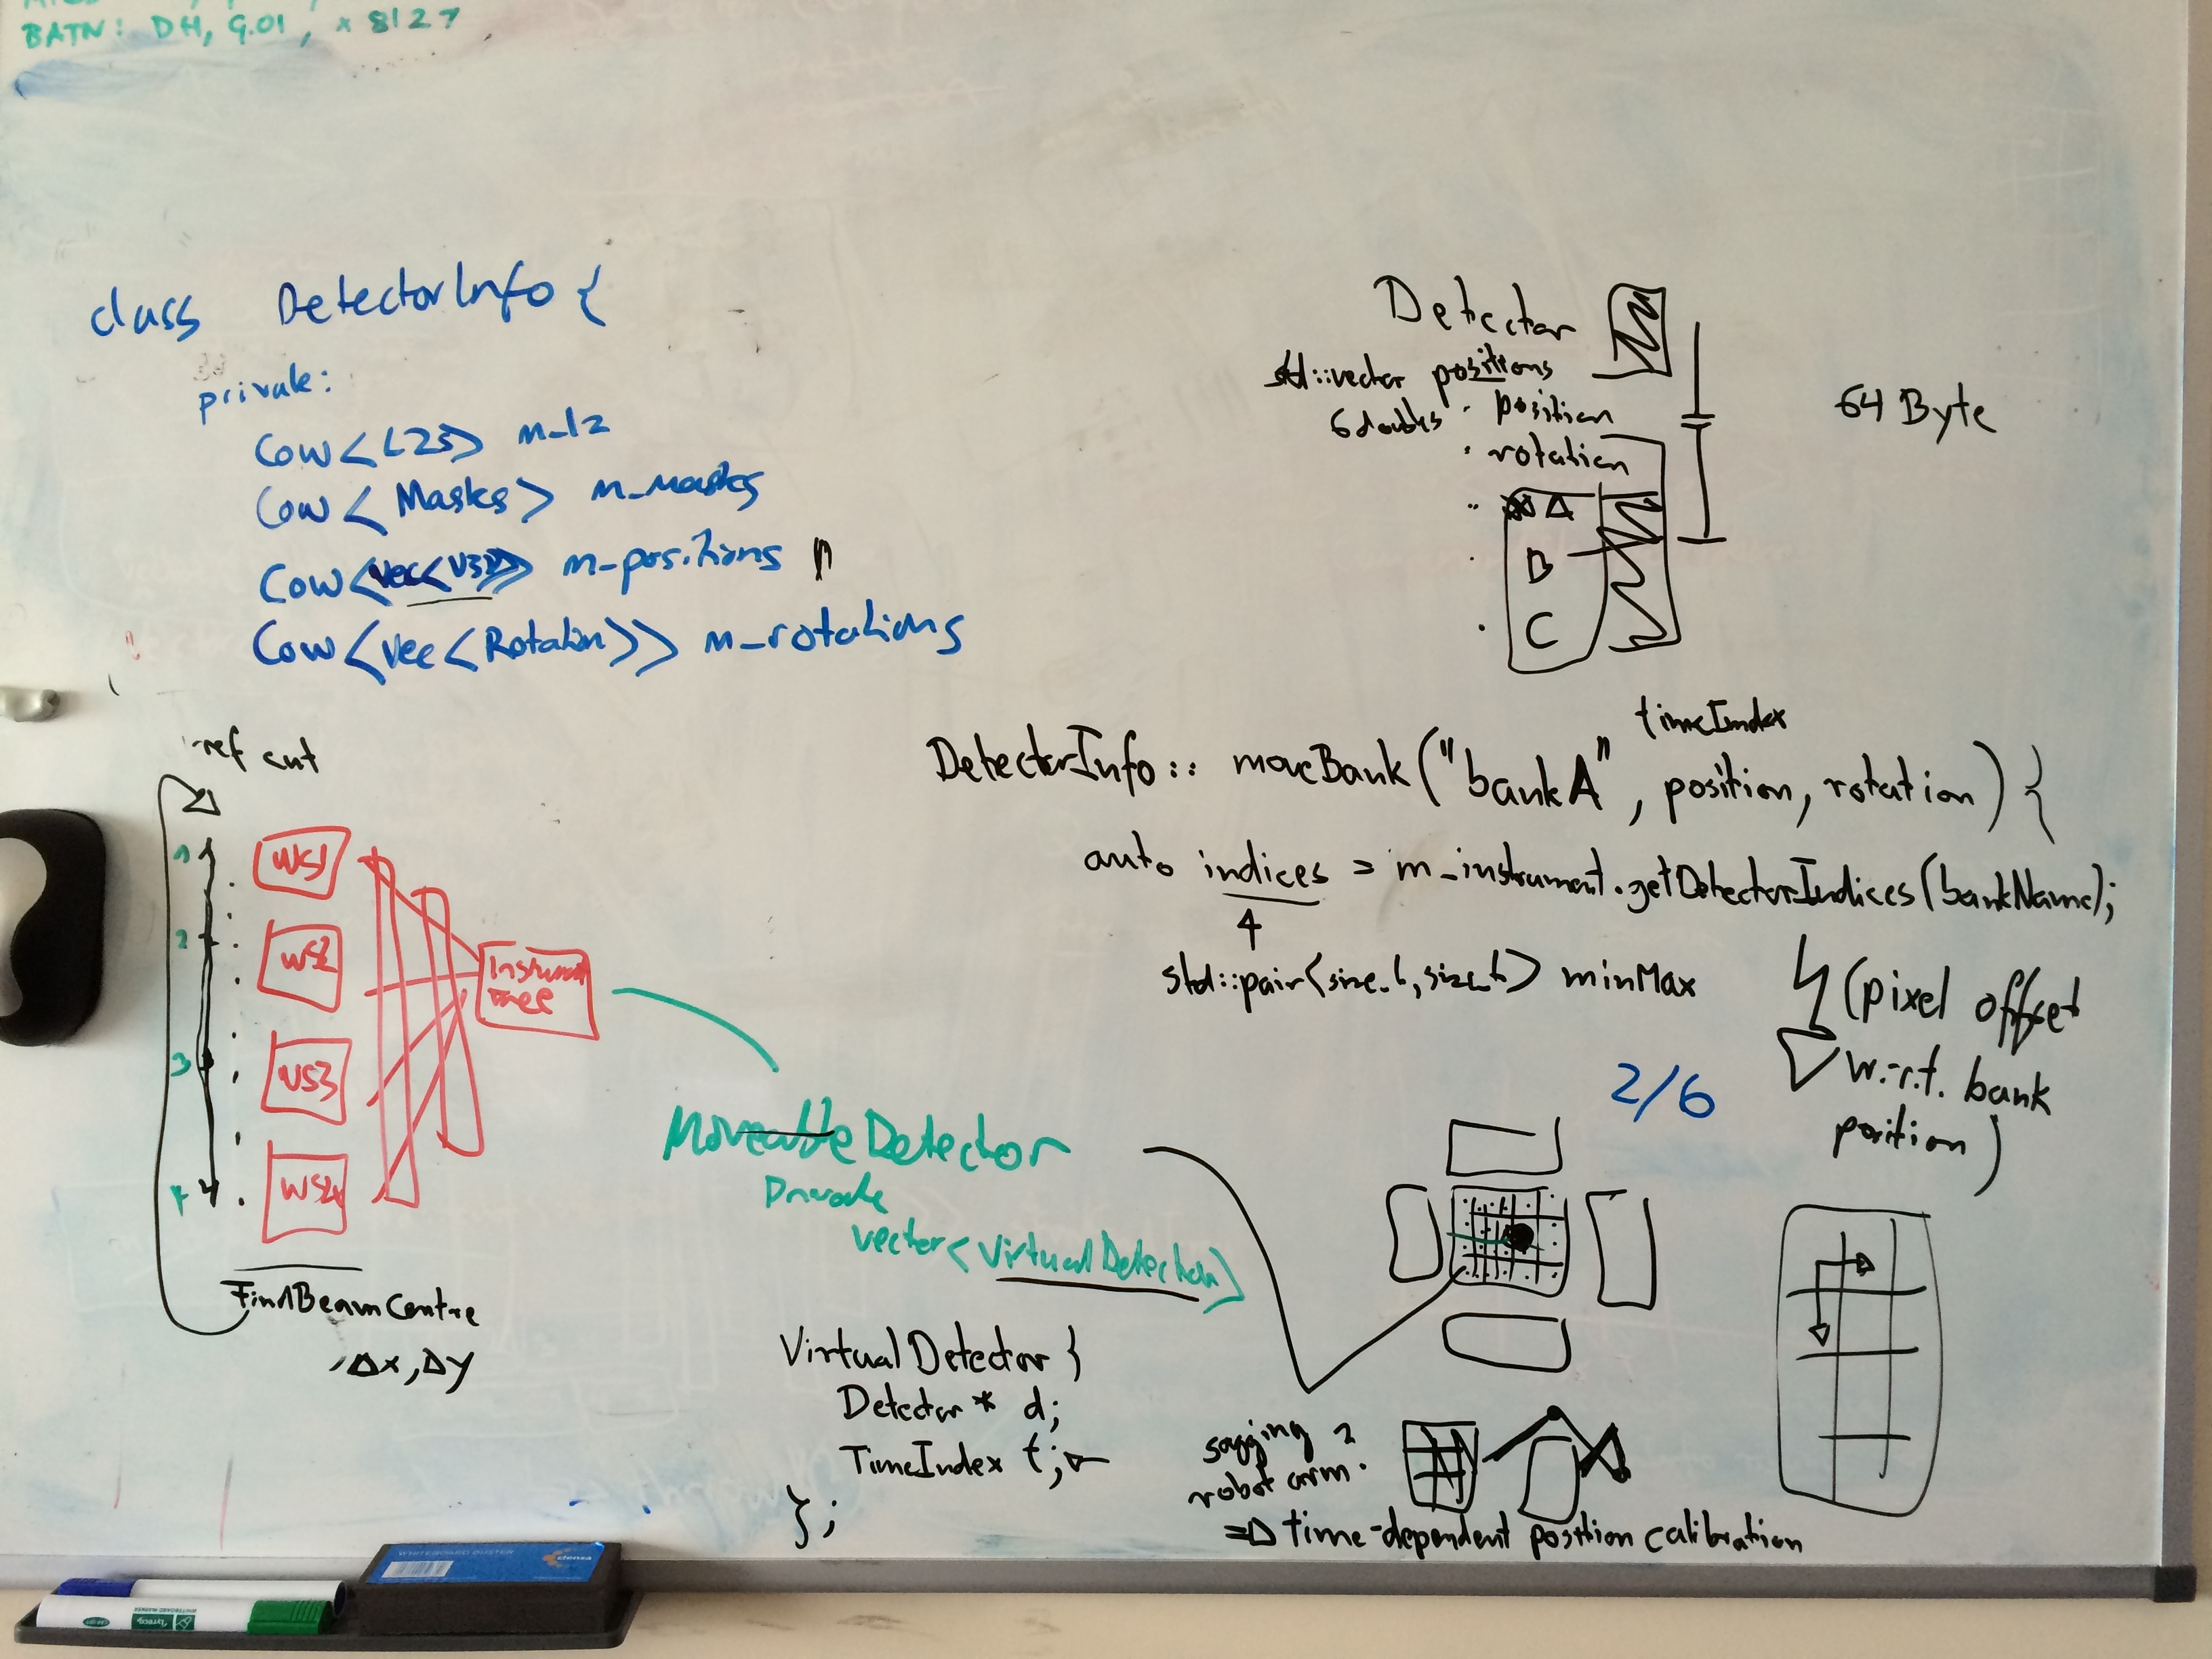 BATN: DH, G.01, x 8127
class DetectorInfo {
private:
Cow<L2s> m_l2
Cow<Masks> m_masks
Cow<vec<V3D>> m_positions
Cow<vec<Rotation>> m_rotations
Detector
std::vector positions
6 doubles · position
· rotation
A
B
C
64 Byte
ref cnt
1
2
3
4
WS1
WS2
WS3
WS4
Instrument
Tree
FindBeamCentre
Δx, Δy
timeIndex
DetectorInfo:: moveBank("bankA", position, rotation) {
auto indices = m_instrument.getDetectorIndices(bankName);
4
std::pair<size_t, size_t> minMax
(pixel offset
w.r.t. bank
position)
2/6
Moveable Detector
Private
vector<VirtualDetector>
VirtualDetector {
Detector * d;
TimeIndex t;
};
sagging
robot arm
=> time-dependent position calibration
WHITEBOARD DUSTER